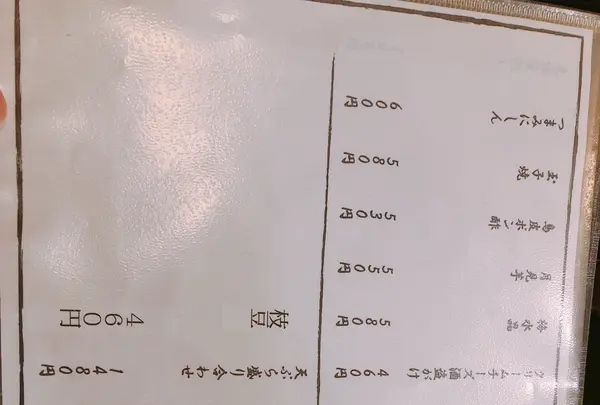 クリームチーズ酒盗がけ 460円
梅水晶 580円
月見芋 550円
鳥皮ポン酢 530円
玉子焼 580円
つまみにしん 600円
天ぷら盛り合わせ 1480円
枝豆 460円